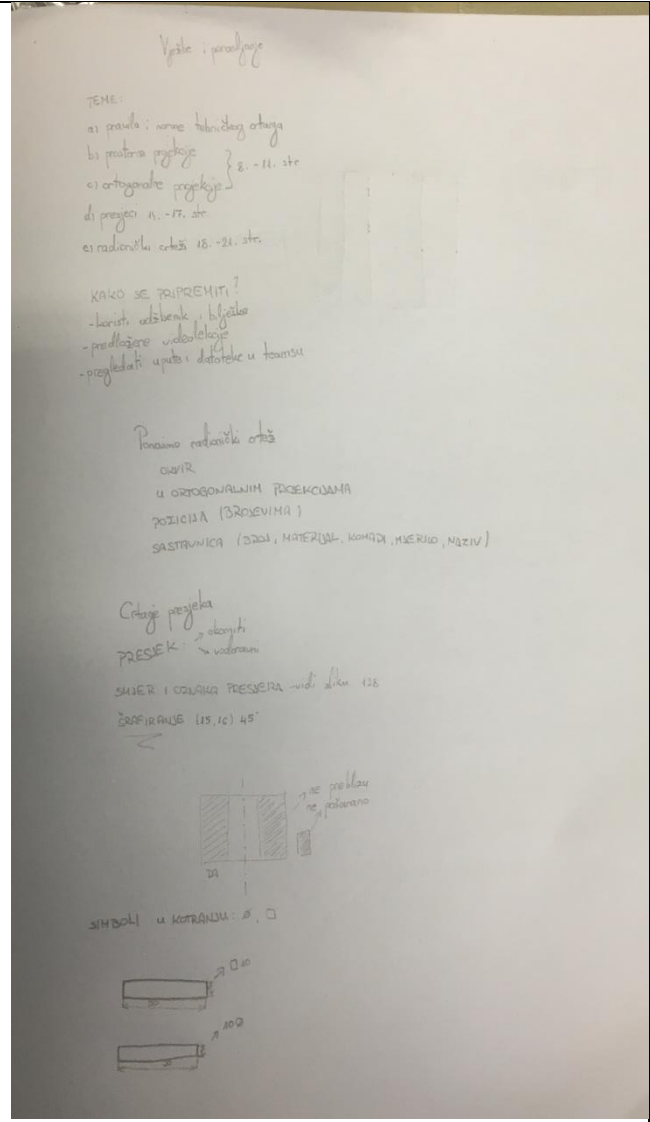 Vježbe i ponavljanje
TEME:
a) pravila i norme tehničkog crtanja
b) prostorna projekcije
c) ortogonalne projekcije
8. - 11. str
d) presjeci 14. - 17. str.
e) radionički crteži 18. - 21. str.
KAKO SE PRIPREMITI?
- koristi udžbenik i bilješke
- predložene videolekcije
- pregledati upute i datoteke u teamsu
Ponovimo radionički crtež
OKVIR
U ORTOGONALNIM PROJEKCIJAMA
POZICIJA (BROJEVIMA)
SASTAVNICA (BROJ, MATERIJAL, KOMADI, MJERILO, NAZIV)
Crtanje presjeka
PRESJEK:
okomiti
vodoravni
SMJER I OZNAKA PRESJEKA - vidi sliku 138
ŠRAFIRANJE (15, 16) 45°
ne
ne
DA
SIMBOLI U KOTIRANJU: ø, □
□ 10
10